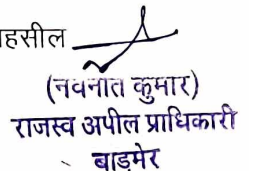 हसील
(नवनीत कुमार)
राजस्व अपील प्राधिकारी
बाड़मेर